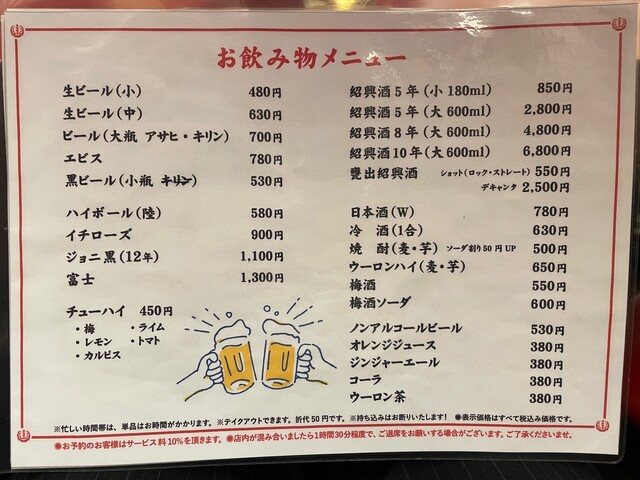 お飲み物メニュー
生ビール(小) 480円
生ビール(中) 630円
ビール(大瓶 アサヒ・キリン) 700円
エビス 780円
黒ビール(小瓶 キリン) 530円
ハイボール(陸) 580円
イチローズ 900円
ジョニ黒(12年) 1,100円
富士 1,300円
チューハイ 450円
・梅 ・ライム
・レモン ・トマト
・カルピス
紹興酒5年(小 180ml) 850円
紹興酒5年(大 600ml) 2,800円
紹興酒8年(大 600ml) 4,800円
紹興酒10年(大 600ml) 6,800円
甕出紹興酒 ショット(ロック・ストレート) 550円
デキャンタ 2,500円
日本酒(W) 780円
冷 酒(1合) 630円
焼 酎(麦・芋) ソーダ割り50円UP 500円
ウーロンハイ(麦・芋) 650円
梅酒 550円
梅酒ソーダ 600円
ノンアルコールビール 530円
オレンジジュース 380円
ジンジャーエール 380円
コーラ 380円
ウーロン茶 380円
※忙しい時間帯は、単品はお時間がかかります。※テイクアウトできます。折代50円です。※持ち込みはお断りいたします! ◉表示価格はすべて税込み価格です。
◉お予約のお客様はサービス料10%を頂きます。◉店内が混み合いましたら1時間30分程度で、ご退席をお願いする場合がございます。ご了承くださいませ。